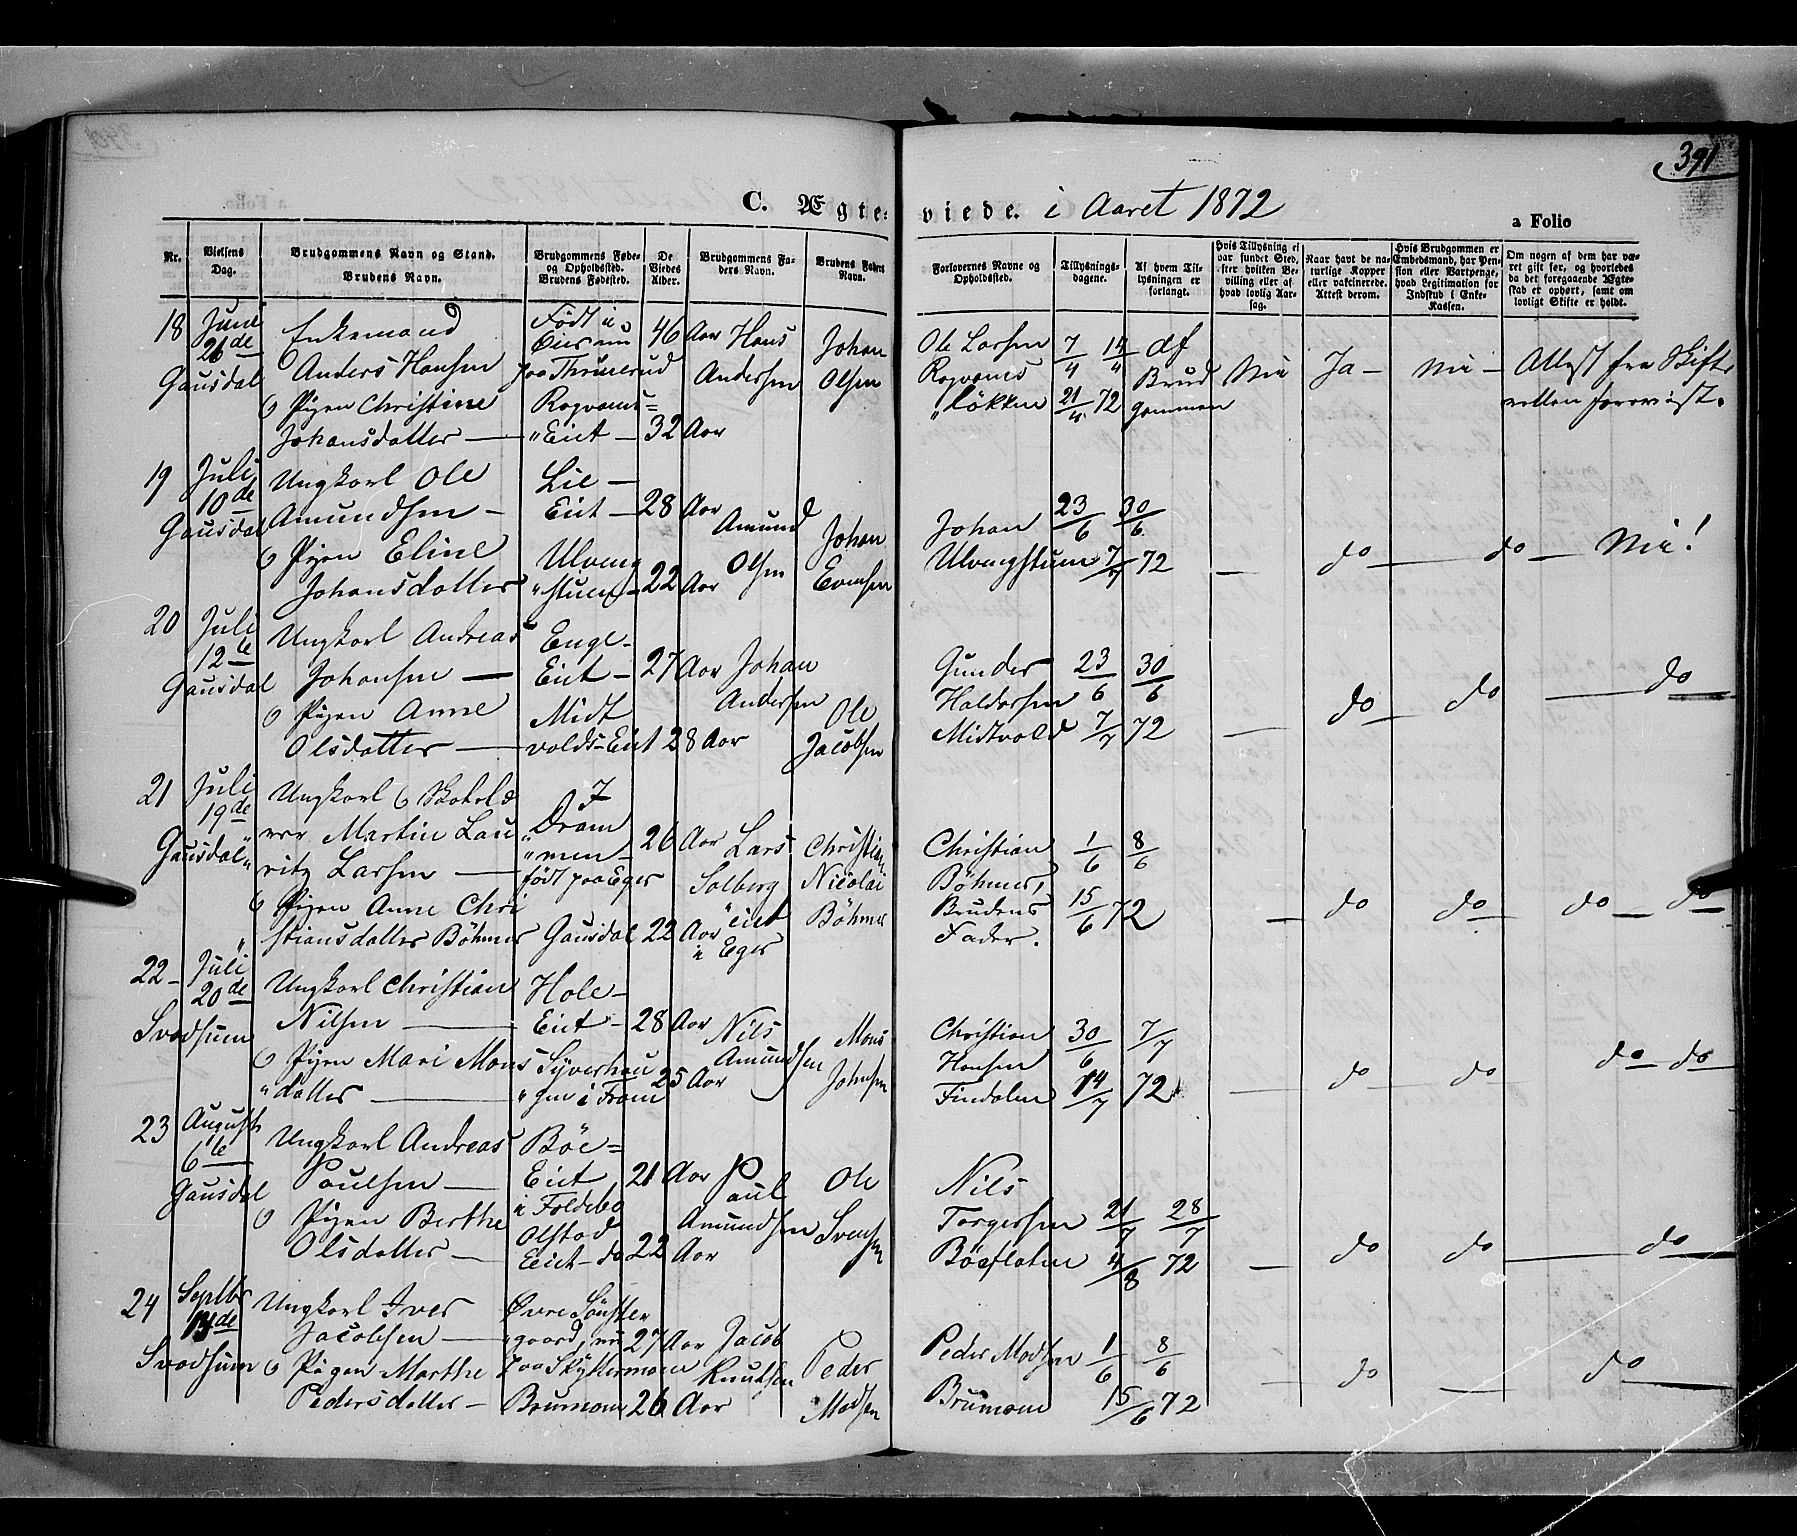 391
C. Ægte-
viede. i Aaret 1872
a Folio
Nr.
Vielsens Dag.
Brudgommens Navn og Stand.
Brudens Navn.
Brudgommens Føde-
og Opholdssted.
Brudens Fødested.
De
Viedes
Alder.
Brudgommens Fa-
ders Navn.
Brudens Faders
Navn.
Forlovernes Navne og
Opholdssted.
Tillysnings-
dagene.
Af hvem Til-
lysningen er
forlangt.
Hvis Tillysning ei
har fundet Sted,
efter hvilken Be-
villing eller af
hvad lovlig Aar-
sag.
Naar havt de na-
turlige Kopper
eller vaccinerede.
Attest derom.
Hvis Brudgommen er
Embedsmand, har Pen-
sion eller Vartpenge,
hvad Legitimation for
Indskud i Enke-
Kassen.
Om nogen af dem har væ-
ret gift før, og hvorledes
da det foregaaende Ægte-
skab er ophørt, samt om
lovligt Skifte er holdt.
18 Juni
26de
Gausdal
Enkemand
Anders Hansen
& Pigen Christine
Johansdatter —
Født i
Eier nu
paa
46 Aar
32 Aar
Hans
Andersen
Johan
Olsen
Ole Larsen
Løkken
7/4 14/4
21/4 72
af
Brud
gommen
Nei
Ja —
Nei —
Attest fra Skifte
retten forevist.
19 Juli
10de
Gausdal
Ungkarl Ole
Amundsen —
& Pigen Eline
Johansdatter
Lie —
Eiet —
28 Aar
22 Aar
Amund
Olsen
Johan
Evensen
Johan
23/6 30/6
7/7 72
—
do —
do —
Nei!
20 Juli
12te
Gausdal
Ungkarl Andreas
Johansen —
& Pigen Anne
Olsdatter —
Enge-
Eiet —
Midt
volds-Eiet
27 Aar
28 Aar
Johan
Andersen
Ole
Jacobsen
Gunder
Haldorsen
Midtvold
23/6 30/6
7/7 72
—
do —
do
— do
21 Juli
19de
Gausdal
Ungkarl & Skohold
Martin Lau
ritz Larsen —
& Pigen Anne Chri
stiansdatter Böhmer
I
Dram
"men —
født paa Eger
Gausdal
26 Aar
22 Aar
Lars
Solberg
eiet
i Eger
Christian
Nicolai
Böhmer
Christian
Böhmer,
Brudens
Fader.
1/6 8/6
15/6 72
—
do
do
do — do
22 — Juli
20de
Svadsum
Ungkarl Christian
Nilsen —
& Pigen Mari Mons
"datter —
Hole —
Eiet —
28 Aar
25 Aar
Nils
Amundsen
Mons
Johnsen
Christian
Hansen
30/6 7/7
14/7 72
—
do —
do
do — do
23 August
6te
Gausdal
Ungkarl Andreas
Paulsen —
& Pigen Berthe
Olsdatter —
Bøe =
Eiet
i Foldebo
Olstad
Eiet — do
21 Aar
22 Aar
Paul
Amundsen
Ole
Svensen
Nils
Torgersen
Böeflaten
21/7 28/7
4/8 72
—
do
do
— do
24 Septbr
13de
Svadsum
Ungkarl Iver
Jacobsen —
& Pigen Marthe
Pedersdatter —
Øvre
"gaard, nu
paa
27 Aar
26 Aar
Jacob
Knudsen
Peder
Madsen
Peder Madsen
1/6 8/6
15/6 72
do
—
do